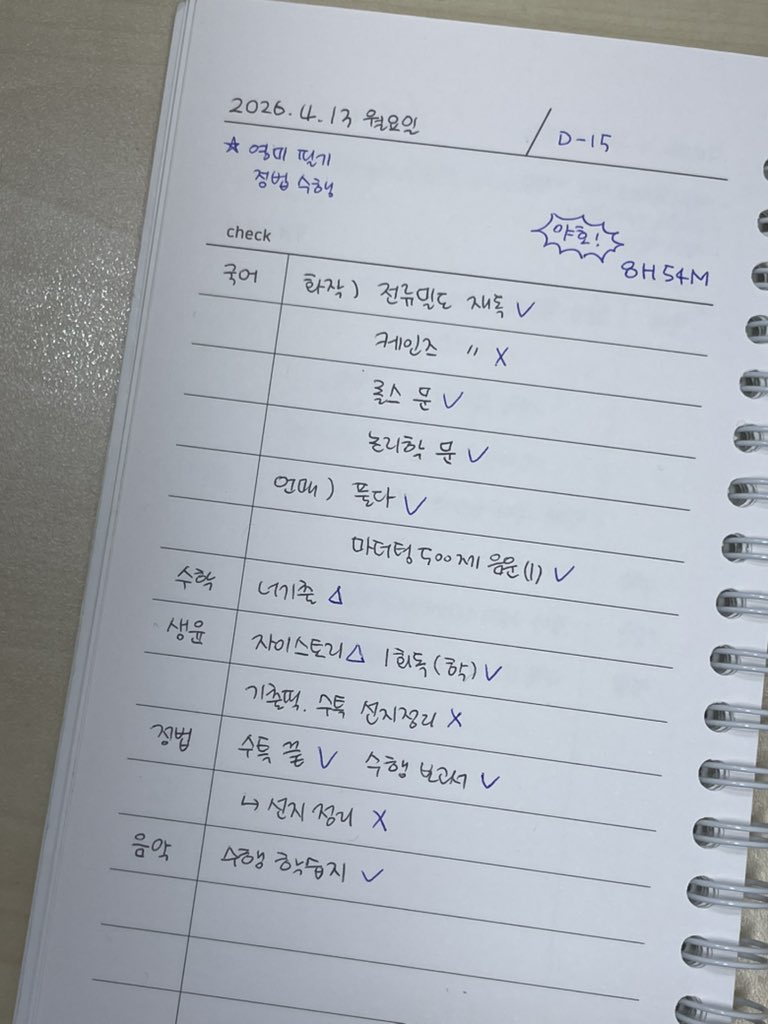 2026.4.13 월요일 / D-15
☆ 영미 필기
정법 수행
야호!
8H 54M
check
국어 화작) 전류밀도 재독 ✓
케인즈 〃 X
롤스 문 ✓
논리학 문 ✓
언매) 풀다 ✓
마더텅 500제 음운(1) ✓
수학 너기출 △
생윤 자이스토리 △ 1회독(학) ✓
기출떡. 수특 선지정리 X
정법 수특 끝 ✓ 수행 보고서 ✓
↳ 선지 정리 X
음악 수행 학습지 ✓